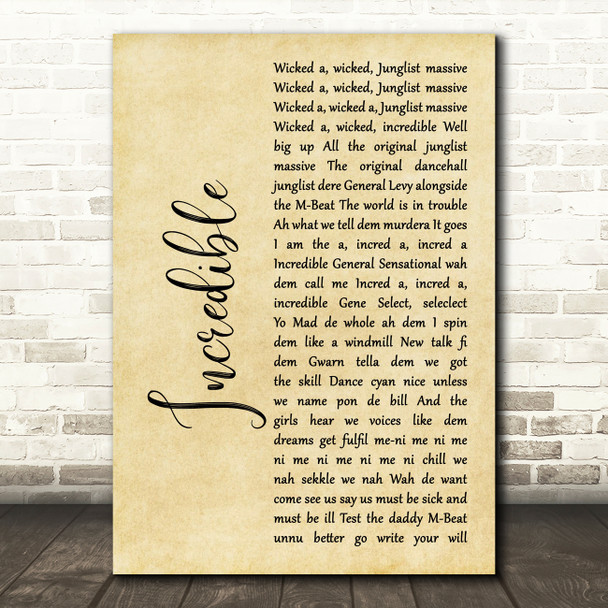 Incredible
Wicked a, wicked, Junglist massive
Wicked a, wicked, Junglist massive
Wicked a, wicked a, Junglist massive
Wicked a, wicked, incredible Well
big up All the original junglist
massive The original dancehall
junglist dere General Levy alongside
the M-Beat The world is in trouble
Ah what we tell dem murdera It goes
I am the a, incred a, incred a
Incredible General Sensational wah
dem call me Incred a, incred a,
incredible Gene Select, seleclect
Yo Mad de whole ah dem I spin
dem like a windmill New talk fi
dem Gwarn tella dem we got
the skill Dance cyan nice unless
we name pon de bill And the
girls hear we voices like dem
dreams get fulfil me-ni me ni me
ni me ni me ni me ni chill we
nah sekkle we nah Wah de want
come see us say us must be sick and
must be ill Test the daddy M-Beat
unnu better go write your will